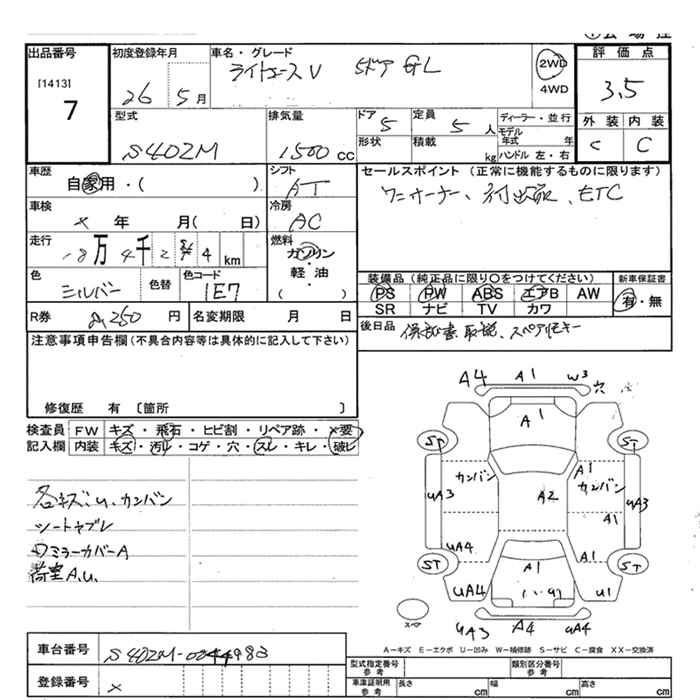 出品番号 初度登録年月 車名・グレード 評価点
[1413] 7 26年 5月 ライトエースV 5ドア GL 2WD 4WD 3.5
型式 排気量 ドア 5 定員 5人 ディーラー・並行 外装 内装
S402M 1500cc 形状 積載 kg モデル年式 年 ハンドル 左・右 C C
車歴 自家用・( ) シフト AT セールスポイント (正常に機能するものに限ります)
車検 × 年 月( 日) 冷房 AC ワンオーナー、 ETC
走行 18万4千2 4km 燃料 ガソリン 軽・油 ( )
色 シルバー 色替 色コード 1E7
装備品 (純正品に限り○をつけてください) 新車保証書
PS PW ABS エアB AW 有・無
SR ナビ TV カワ
R券 250円 名変期限 月 日 後日品 保証書 取説、スペアキー
注意事項申告欄(不具合内容等は具体的に記入して下さい)
修復歴 有 〔箇所 〕
検査員 FW キズ・飛石・ヒビ割・リペア跡・×要
記入欄 内装 キズ・汚レ・コゲ・穴・スレ・キレ・破レ
各キズ、U、カンバン
シートヤブレ
ミラーカバーA
荷室A.U.
A4 A1 W3 穴
A1
ST ST
カンバン A1 カンバン
UA3 A2 UA3
A1
UA4 A1
ST A1 ST
UA4 U1
スペア
UA3 A4 UA4
A−キズ E−エクボ U−凹み W−補修跡 S−サビ C−腐食 XX−交換済
車台番号 S402M-0044983
登録番号 ×
型式指定番号 参考 類別区分番号 参考
車庫証明用 参考 長さ cm 幅 cm 高さ cm